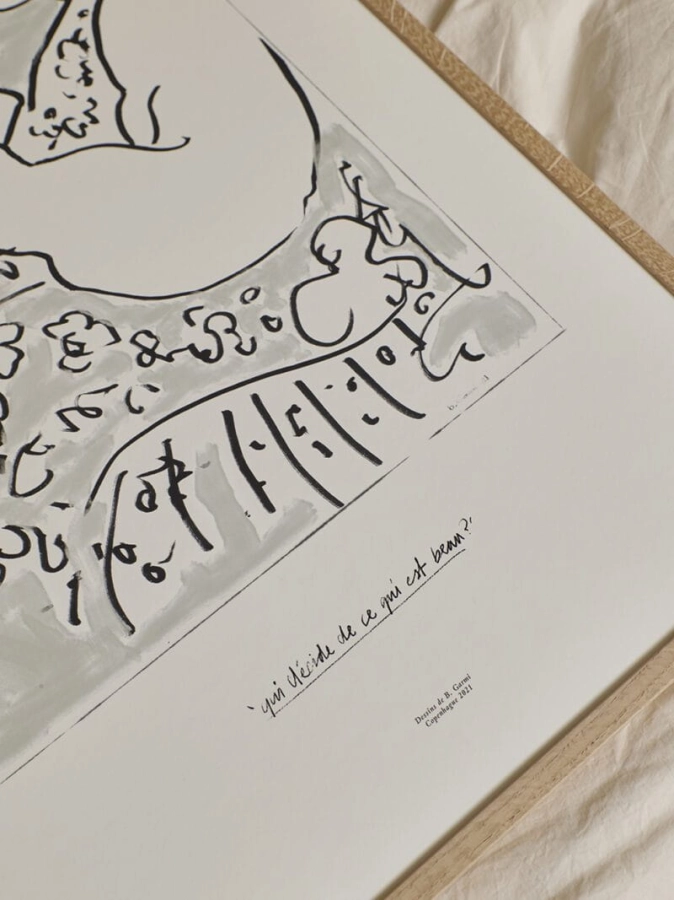 "qui décide de ce qui est beau?"
Dessins de B. Garmi
Copenhague 2021